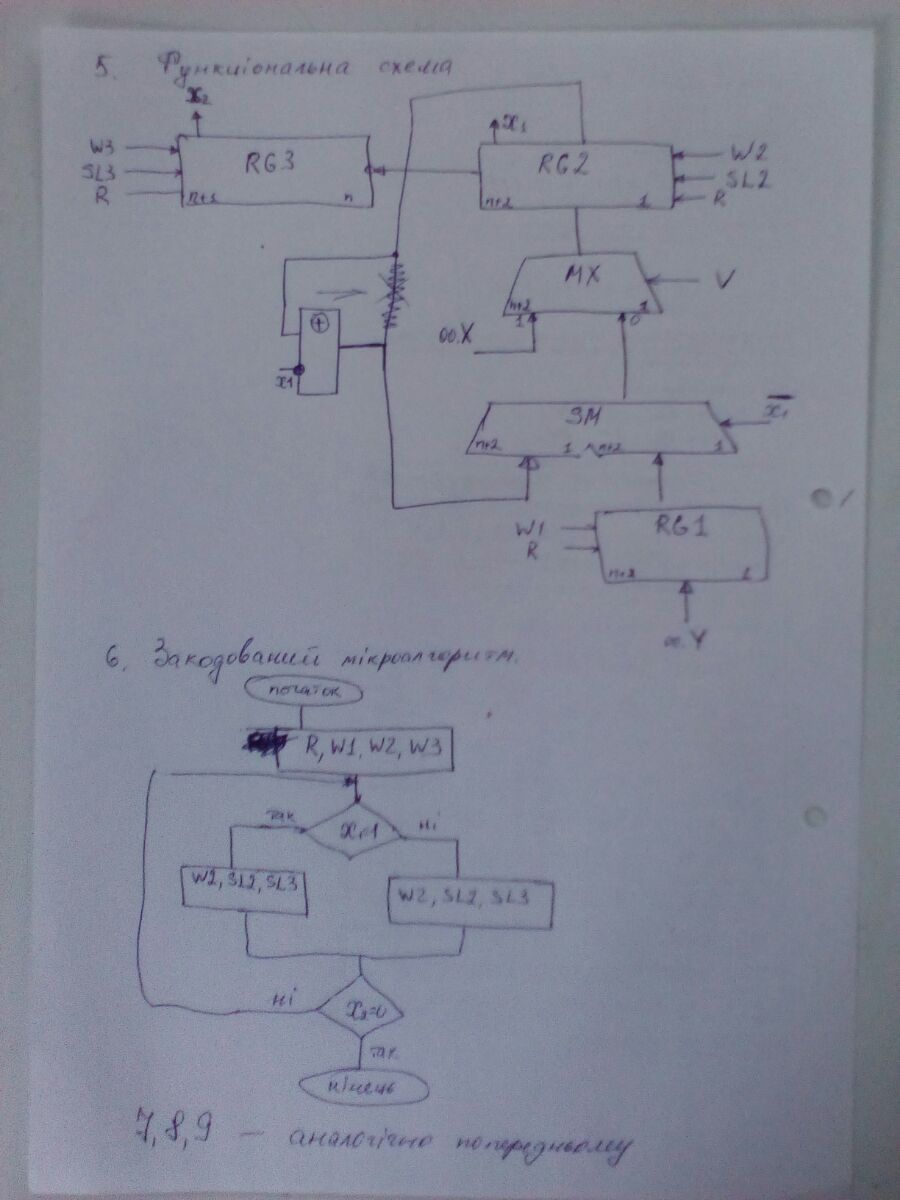 5. Функціональна схема
x2
x1
W3
SL3
R
RG3
n+1 n
RG2
n+2 1
W2
SL2
R
MX
n+2 1
1 0
V
00.X
+
x1
SM
n+2 1 n+2 1
x1
W1
R
RG1
1
00.Y
6. Закодований мікроалгоритм.
початок
R, W1, W2, W3
так
ні
W2, SL2, SL3
W2, SL2, SL3
ні
x2=0
так
кінець
7, 8, 9 — аналогічно попередньому